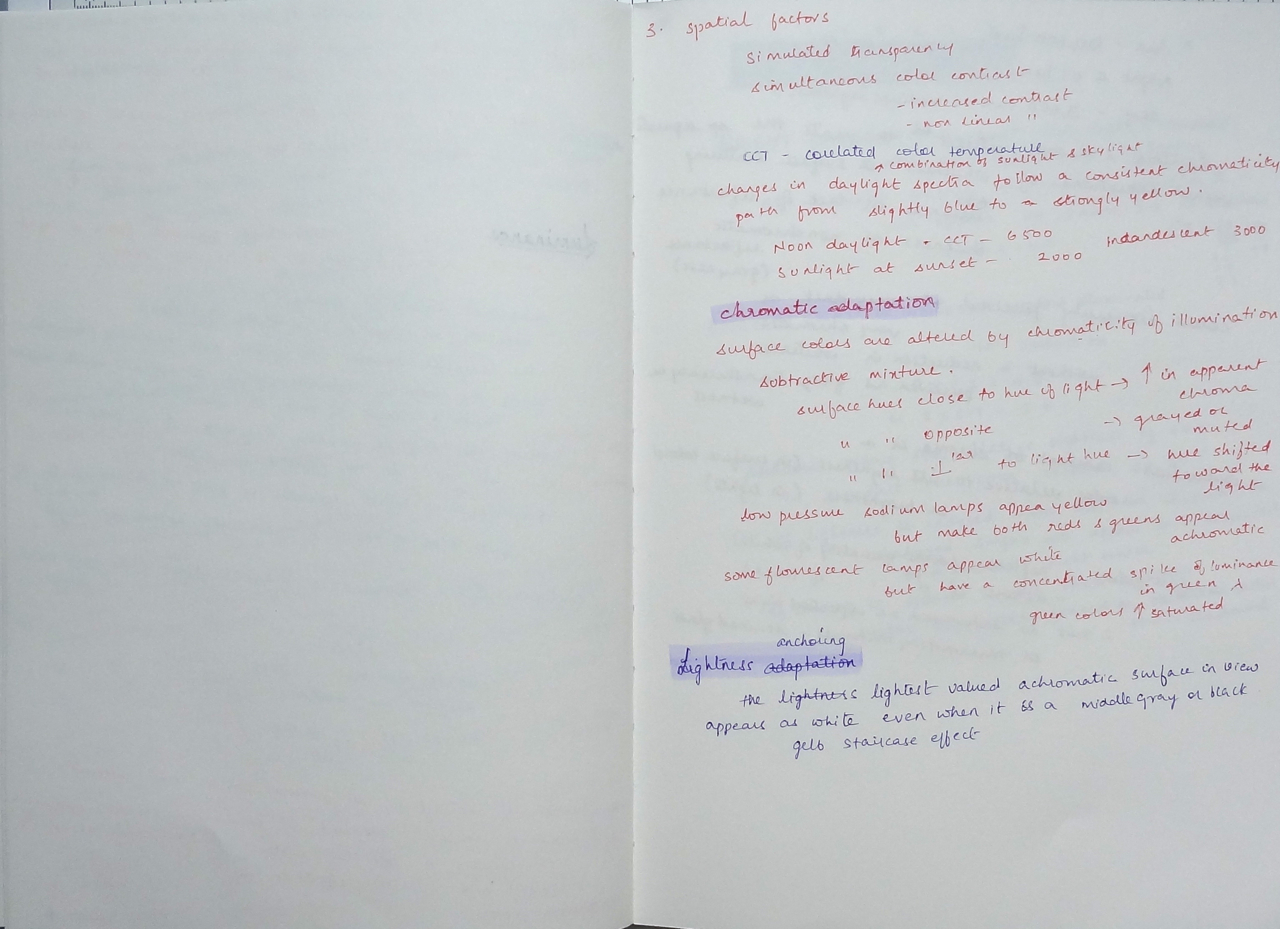 3. spatial factors
simulated transparency
simultaneous color contrast
- increased contrast
- non linear "
CCT - corelated color temperature
combination of sunlight & skylight
changes in daylight spectra follow a consistent chromaticity
path from slightly blue to a strongly yellow.
Noon daylight - CCT - 6500
Indandescent 3000
Sunlight at sunset - 2000
chromatic adaptation
surface colors are altered by chromaticity of illumination
subtractive mixture.
surface hues close to hue of light → ↑ in apparent
chroma
" " opposite → grayed or
muted
" " ⊥lar to light hue → hue shifted
toward the
light
low pressure sodium lamps appear yellow
but make both reds & greens appear
achromatic
some flourescent lamps appear white
but have a concentrated spike of luminance
in green λ
green colors ↑ saturated
anchoring
Lightness adaptation
the lightness lightest valued achromatic surface in view
appears as white even when it is a middle gray or black
gelb staircase effect